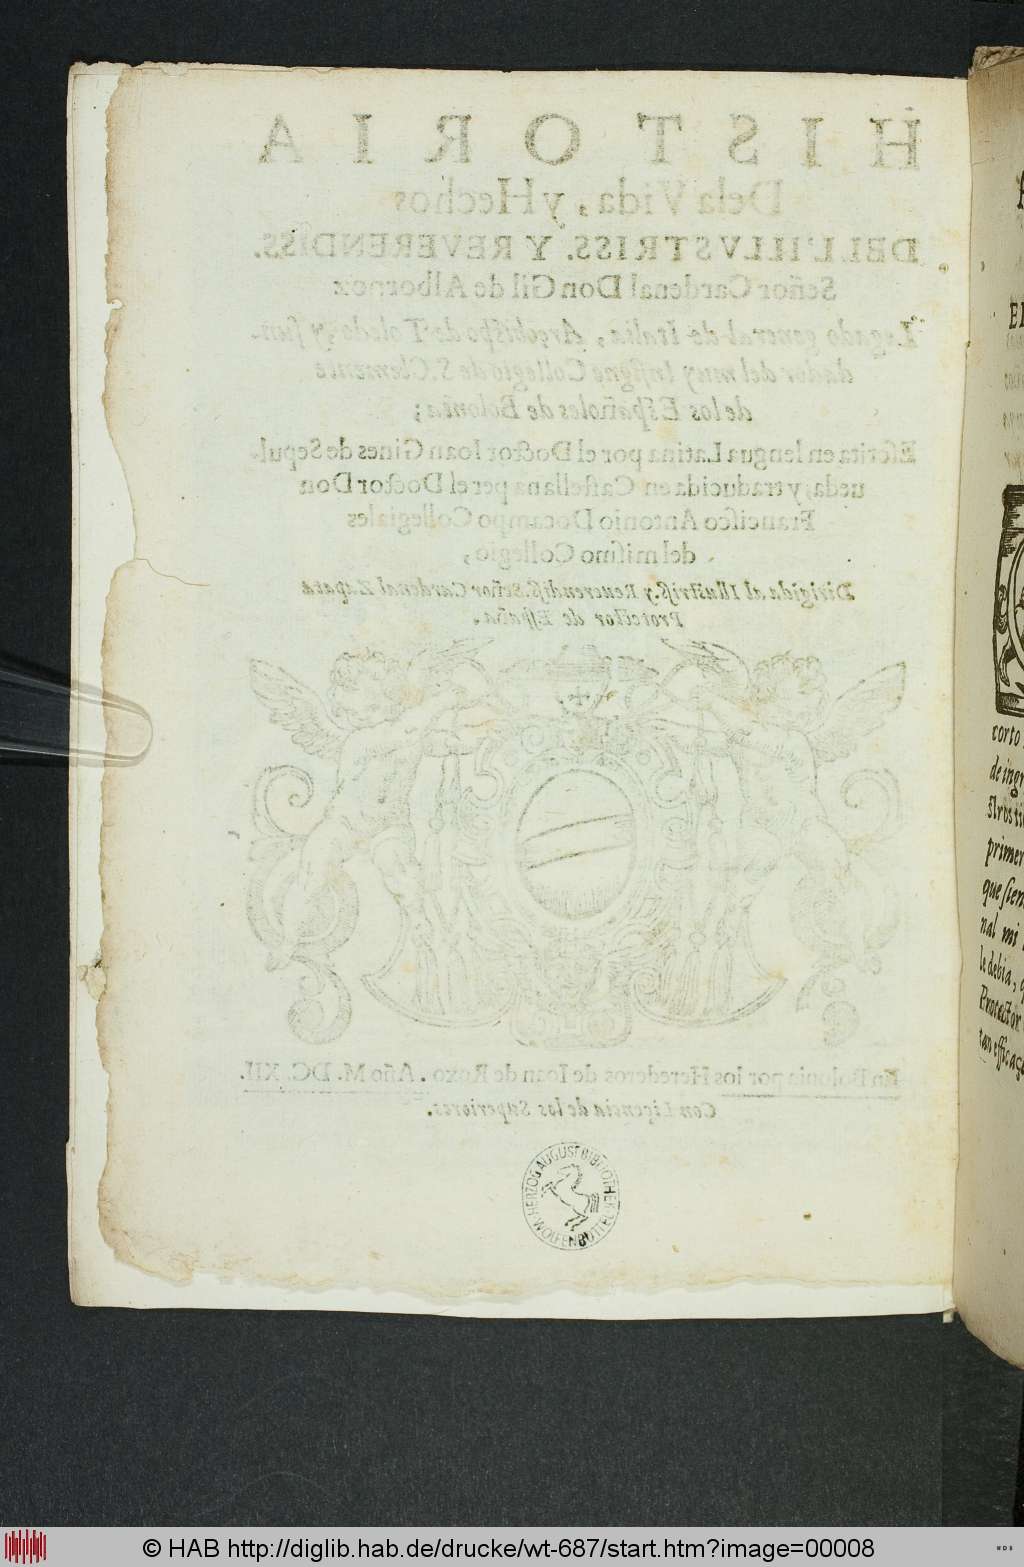 HISTORIA
Dela Vida, y Hechos
DELL'ILLVSTRISS. Y REVERENDISS.
Señor Cardenal Don Gil de Albornoz
Legado general de Italia, Arçobispo de Toledo y fun-
dador del muy Insigne Collegio de S. Clemente
de los Españoles de Bolonia;
Escrita en lengua Latina por el Doctor Ioan Gines de Sepul-
ueda, y traducida en Castellana per el Doctor Don
Francisco Antonio Docampo Collegiales
del mismo Collegio,
Dirigida al Illustriss. y Reuerendiss. Señor Cardenal Zapata
Protector de España.
En Bolonia por los Herederos de Ioan de Roxo. Año M. DC. XII.
Con Liçencia de los Superiores.
HERZOG AUGUST BIBLIOTHEK WOLFENBÜTTEL
corto
de ingr
stros ti
primer
que sien
nal mi
le debia,
Protector
tan efficaç
© HAB http://diglib.hab.de/drucke/wt-687/start.htm?image=00008